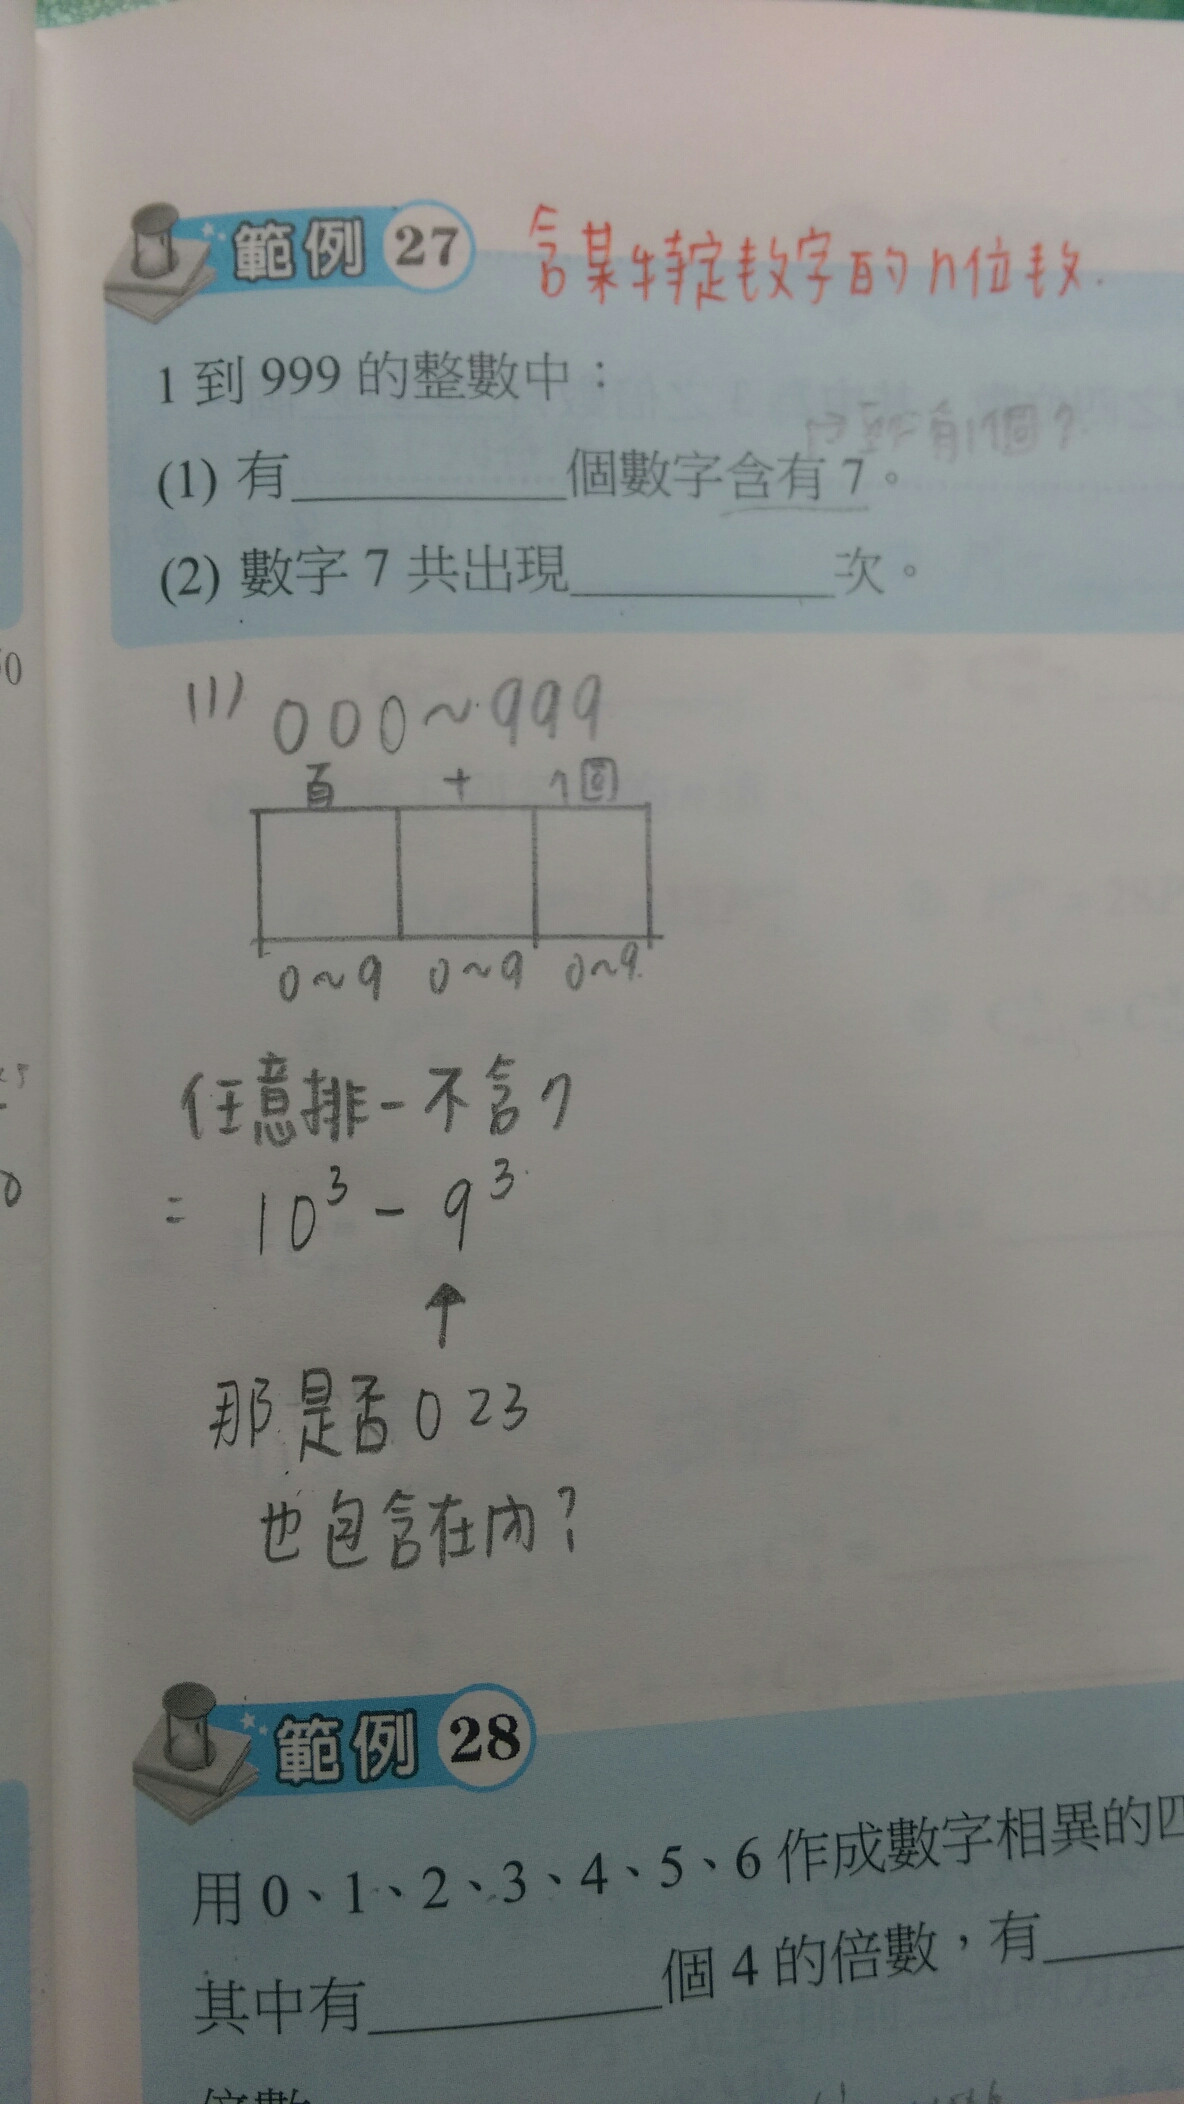 範例 27 含某特定数字的n位数.
1 到 999 的整數中：
至少有1個7
(1) 有 個數字含有 7。
(2) 數字 7 共出現 次。
(1) 000~999
百 十 個
0~9 0~9 0~9.
任意排-不含7
= 10³ - 9³
↑
那是否023
也包含在內?
範例 28
用 0、1、2、3、4、5、6 作成數字相異的四
其中有 個 4 的倍數，有
倍數